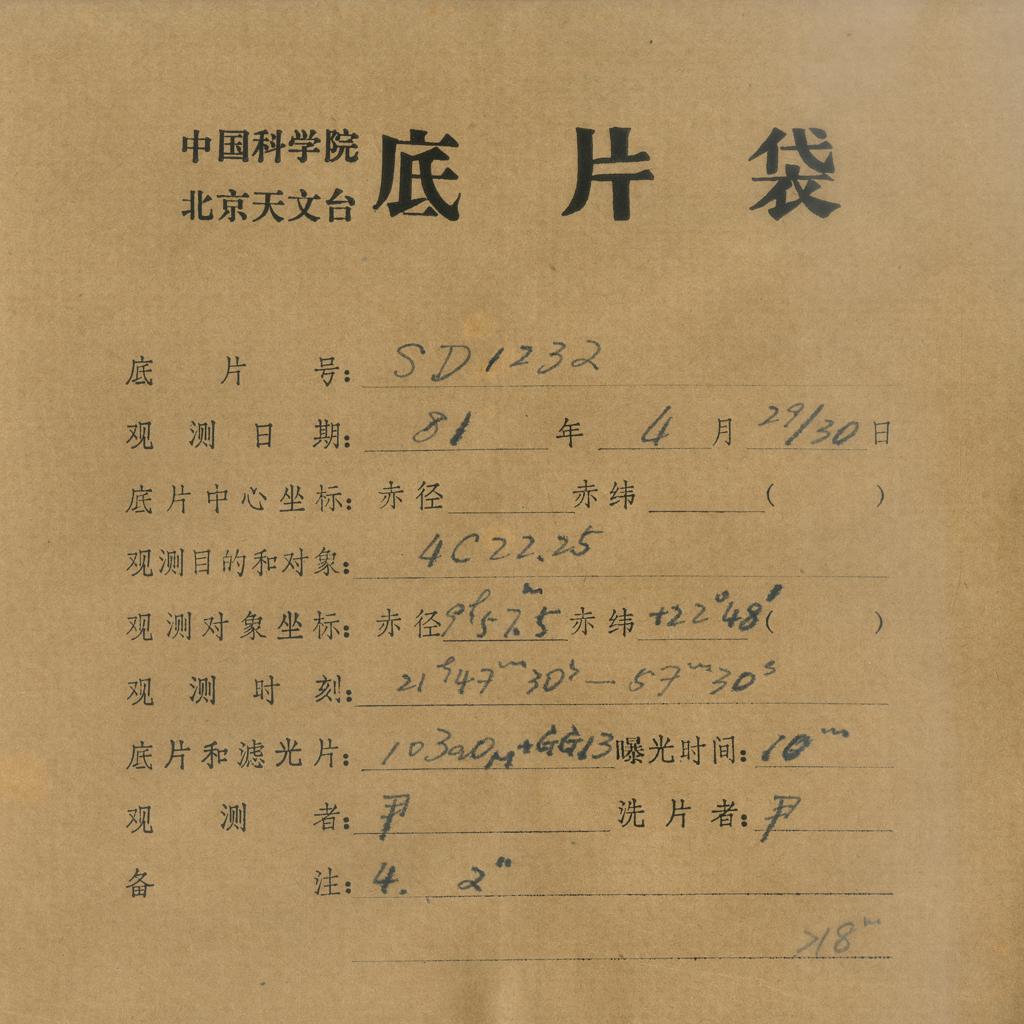 中国科学院
北京天文台
底片袋
底片号: SD1232
观测日期: 81年 4月 29/30日
底片中心坐标: 赤径 赤纬 ( )
观测目的和对象: 4C22.25
观测对象坐标: 赤径 9ʰ57ᵐ.5 赤纬 +22°48′ ( )
观测时刻: 21ʰ47ᵐ30ˢ—57ᵐ30ˢ
底片和滤光片: 103aO_M+GG13 曝光时间: 10ᵐ
观测者: 尹 洗片者: 尹
备注: 4. 2″
>18ᵐ